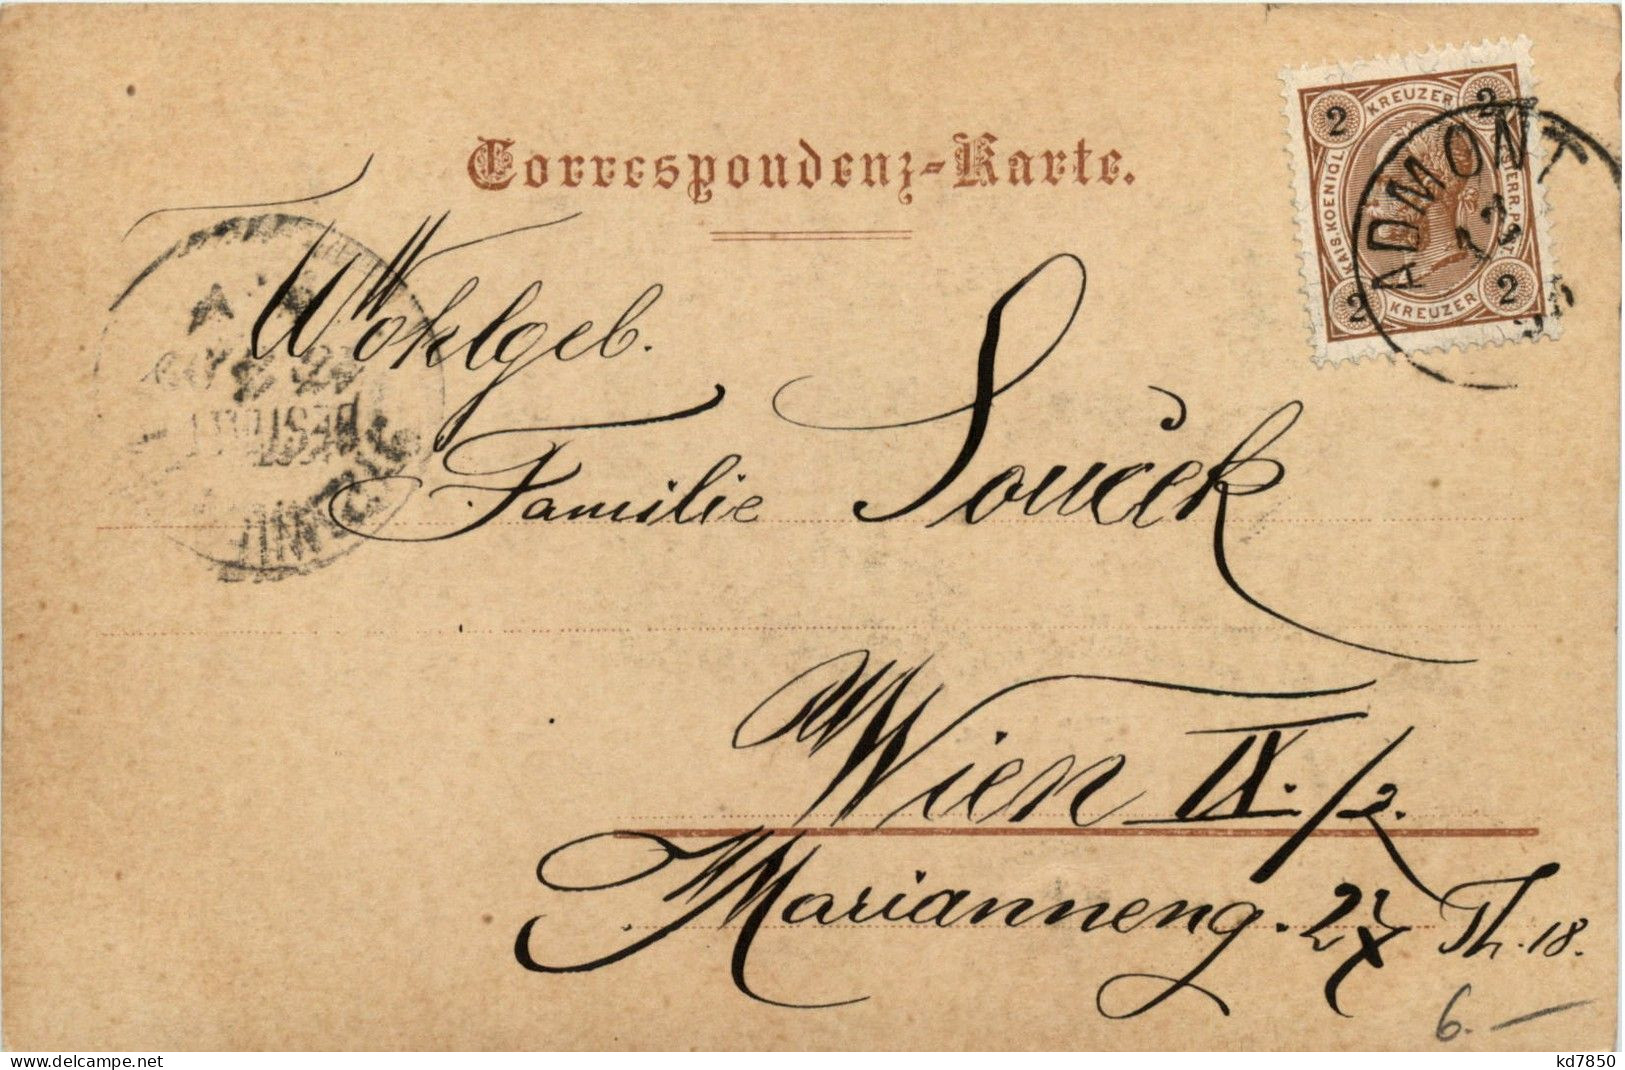 Correspondenz-Karte.
2 KREUZER 2
KAIS. KOENIGL.
2 KREUZER 2
ADMONT
BESTELLT
Wohlgeb.
Familie Souček
Wien IX./2.
Marianneng. 27 Th. 18.
6.—
www.delcampe.net
kd7850